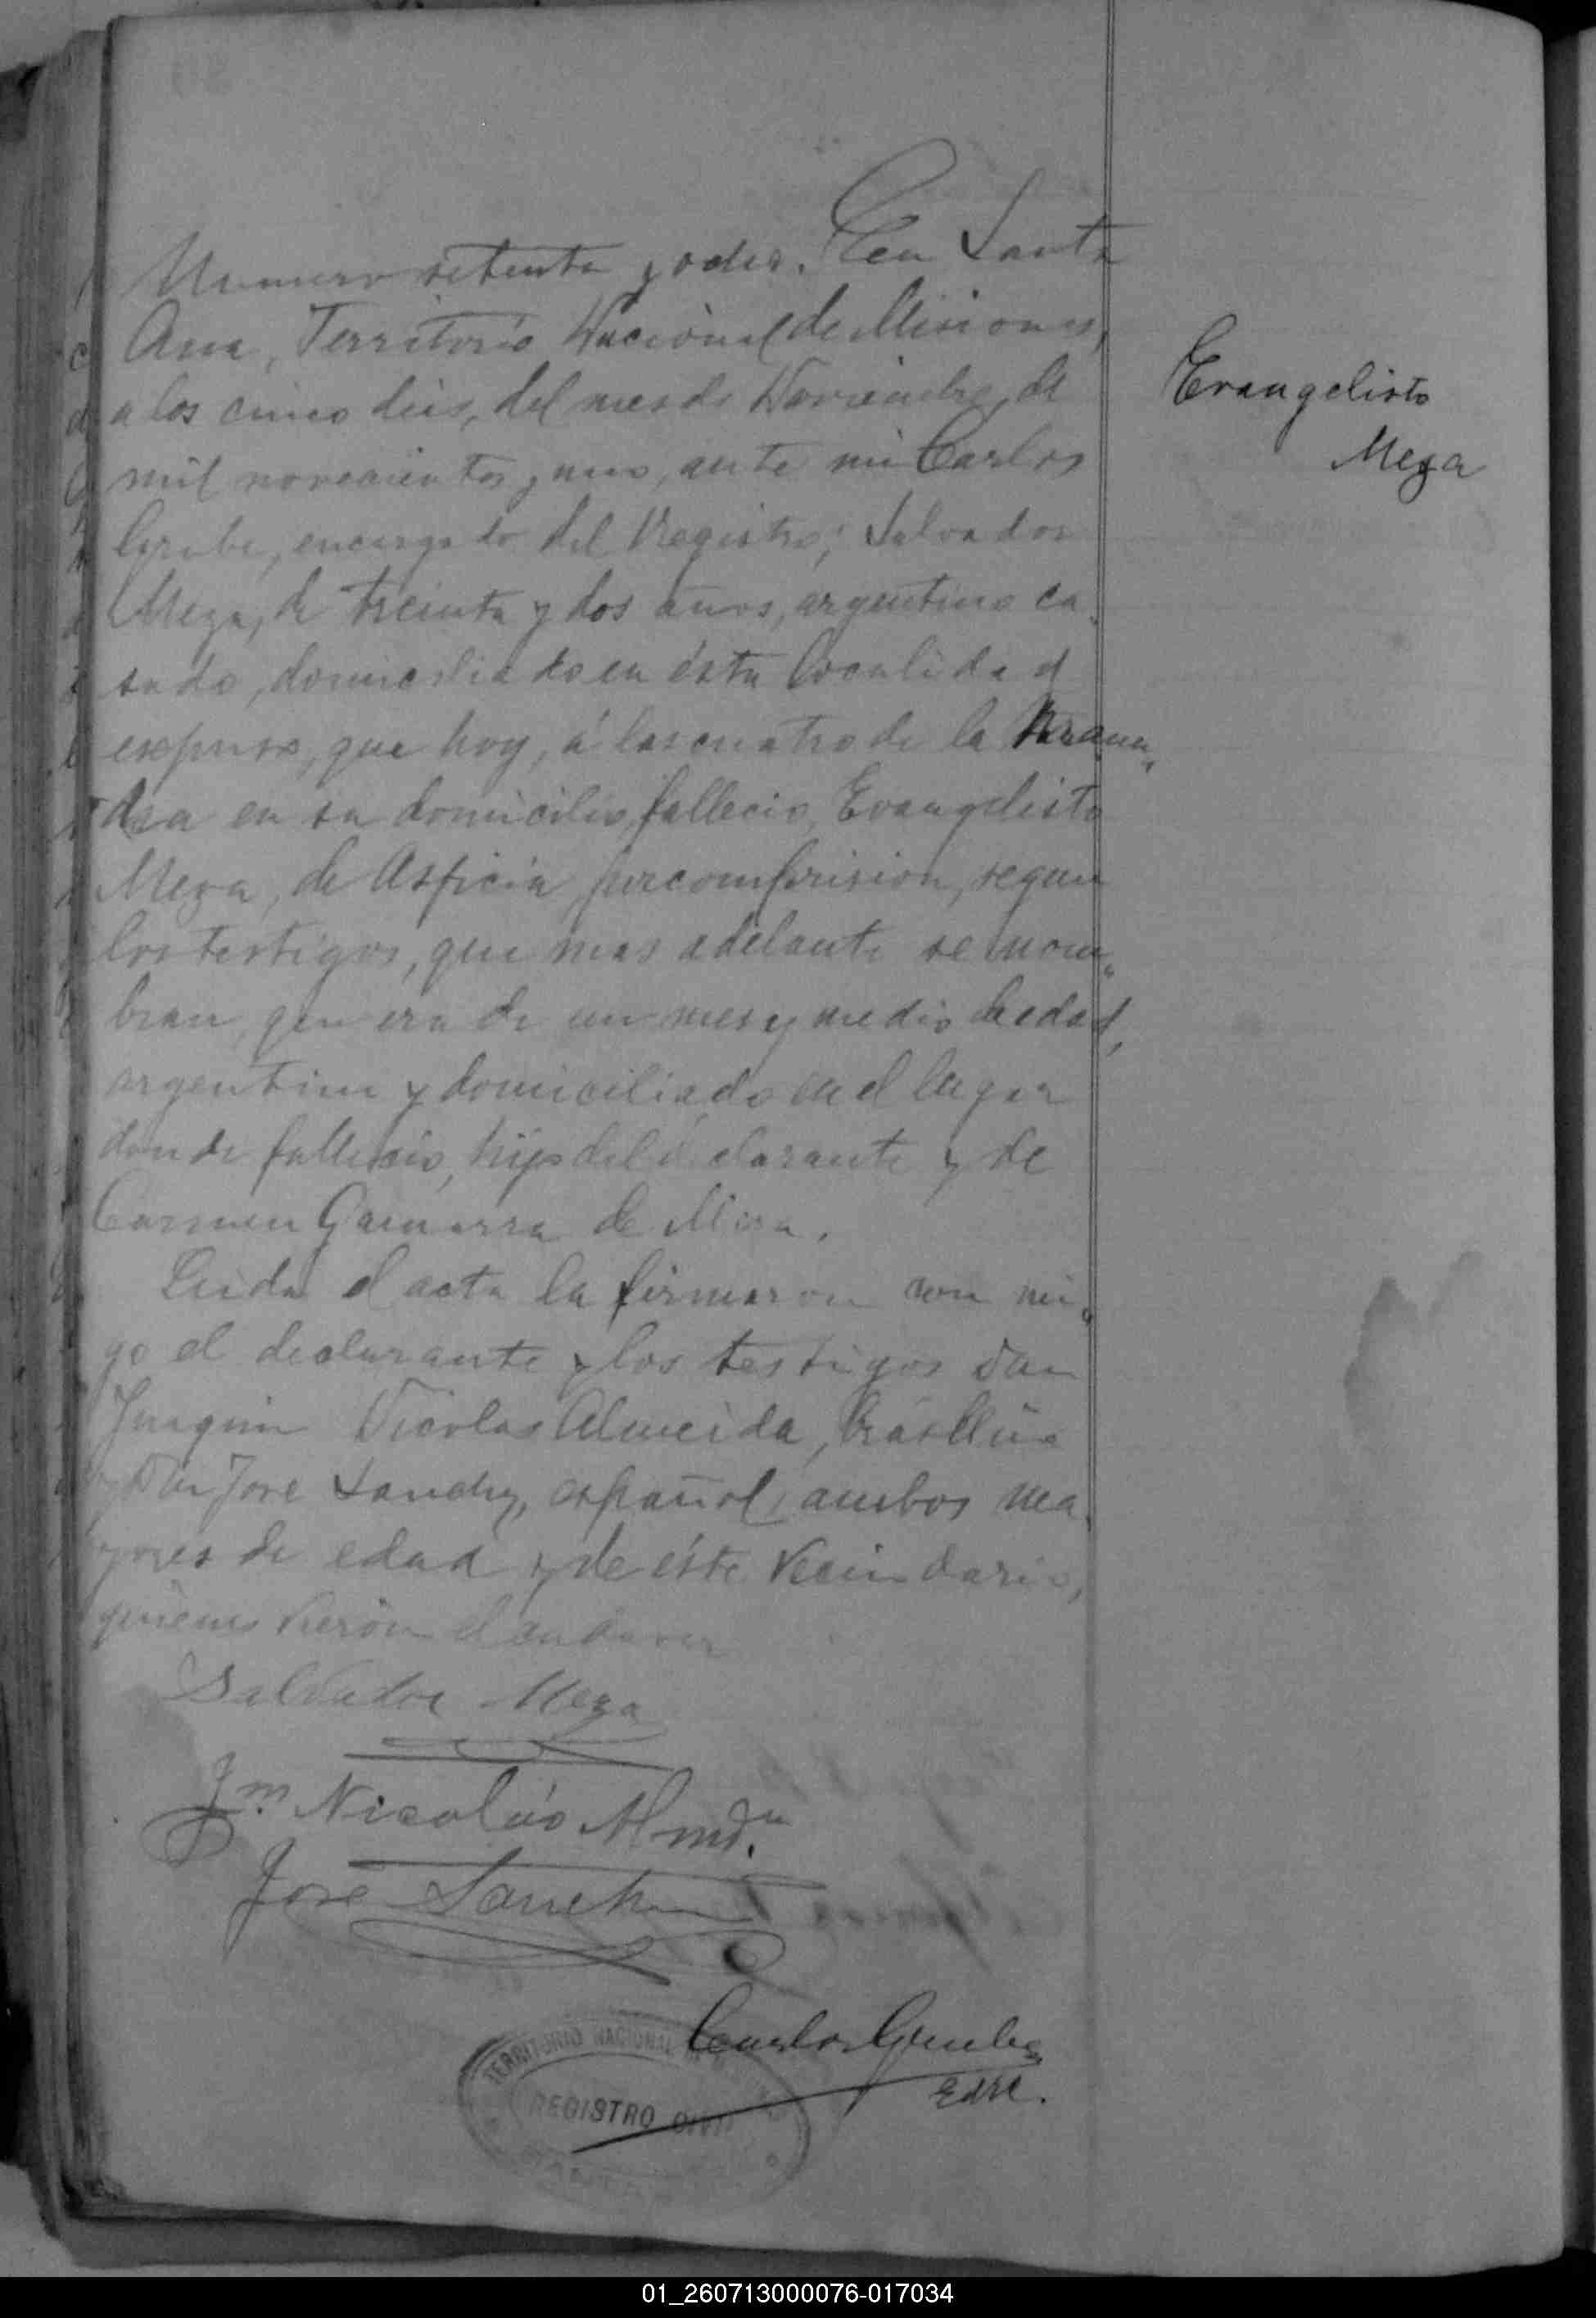 Numero setenta y ocho. En Santa
Ana, Territorio Nacional de Misiones,
a los cinco dias, del mes de Noviembre, de
mil novecientos y uno, ante mi Carlos
encargado del Registro; Salvador
Meza, de treinta y dos años, argentino ca
sado, domiciliado en ésta localidad
expuso, que hoy, á las cuatro de la
en su domicilio, falleció, Evangelisto
Meza, de Asficia por comprision, segun
los testigos, que mas adelante se nom„
bran, que era de un mes y medio de edad,
argentino y domiciliado en el lugar
donde falleció, hijo del declarante y de
Carmen Gamarra de Meza.
Leida el acta la firmaron con mi„
go el declarante y los testigos Don
Juaquin Nicolas Almeida,
y Don José Sanchez, español, ambos ma
yores de edad y de éste vecindario,
quienes vieron el cadaver
Evangelisto
Meza
Salvador Meza
Jm Nicolás
José Sanchez
Carlos
TERRITORIO NACIONAL
REGISTRO CIVIL
01_260713000076-017034